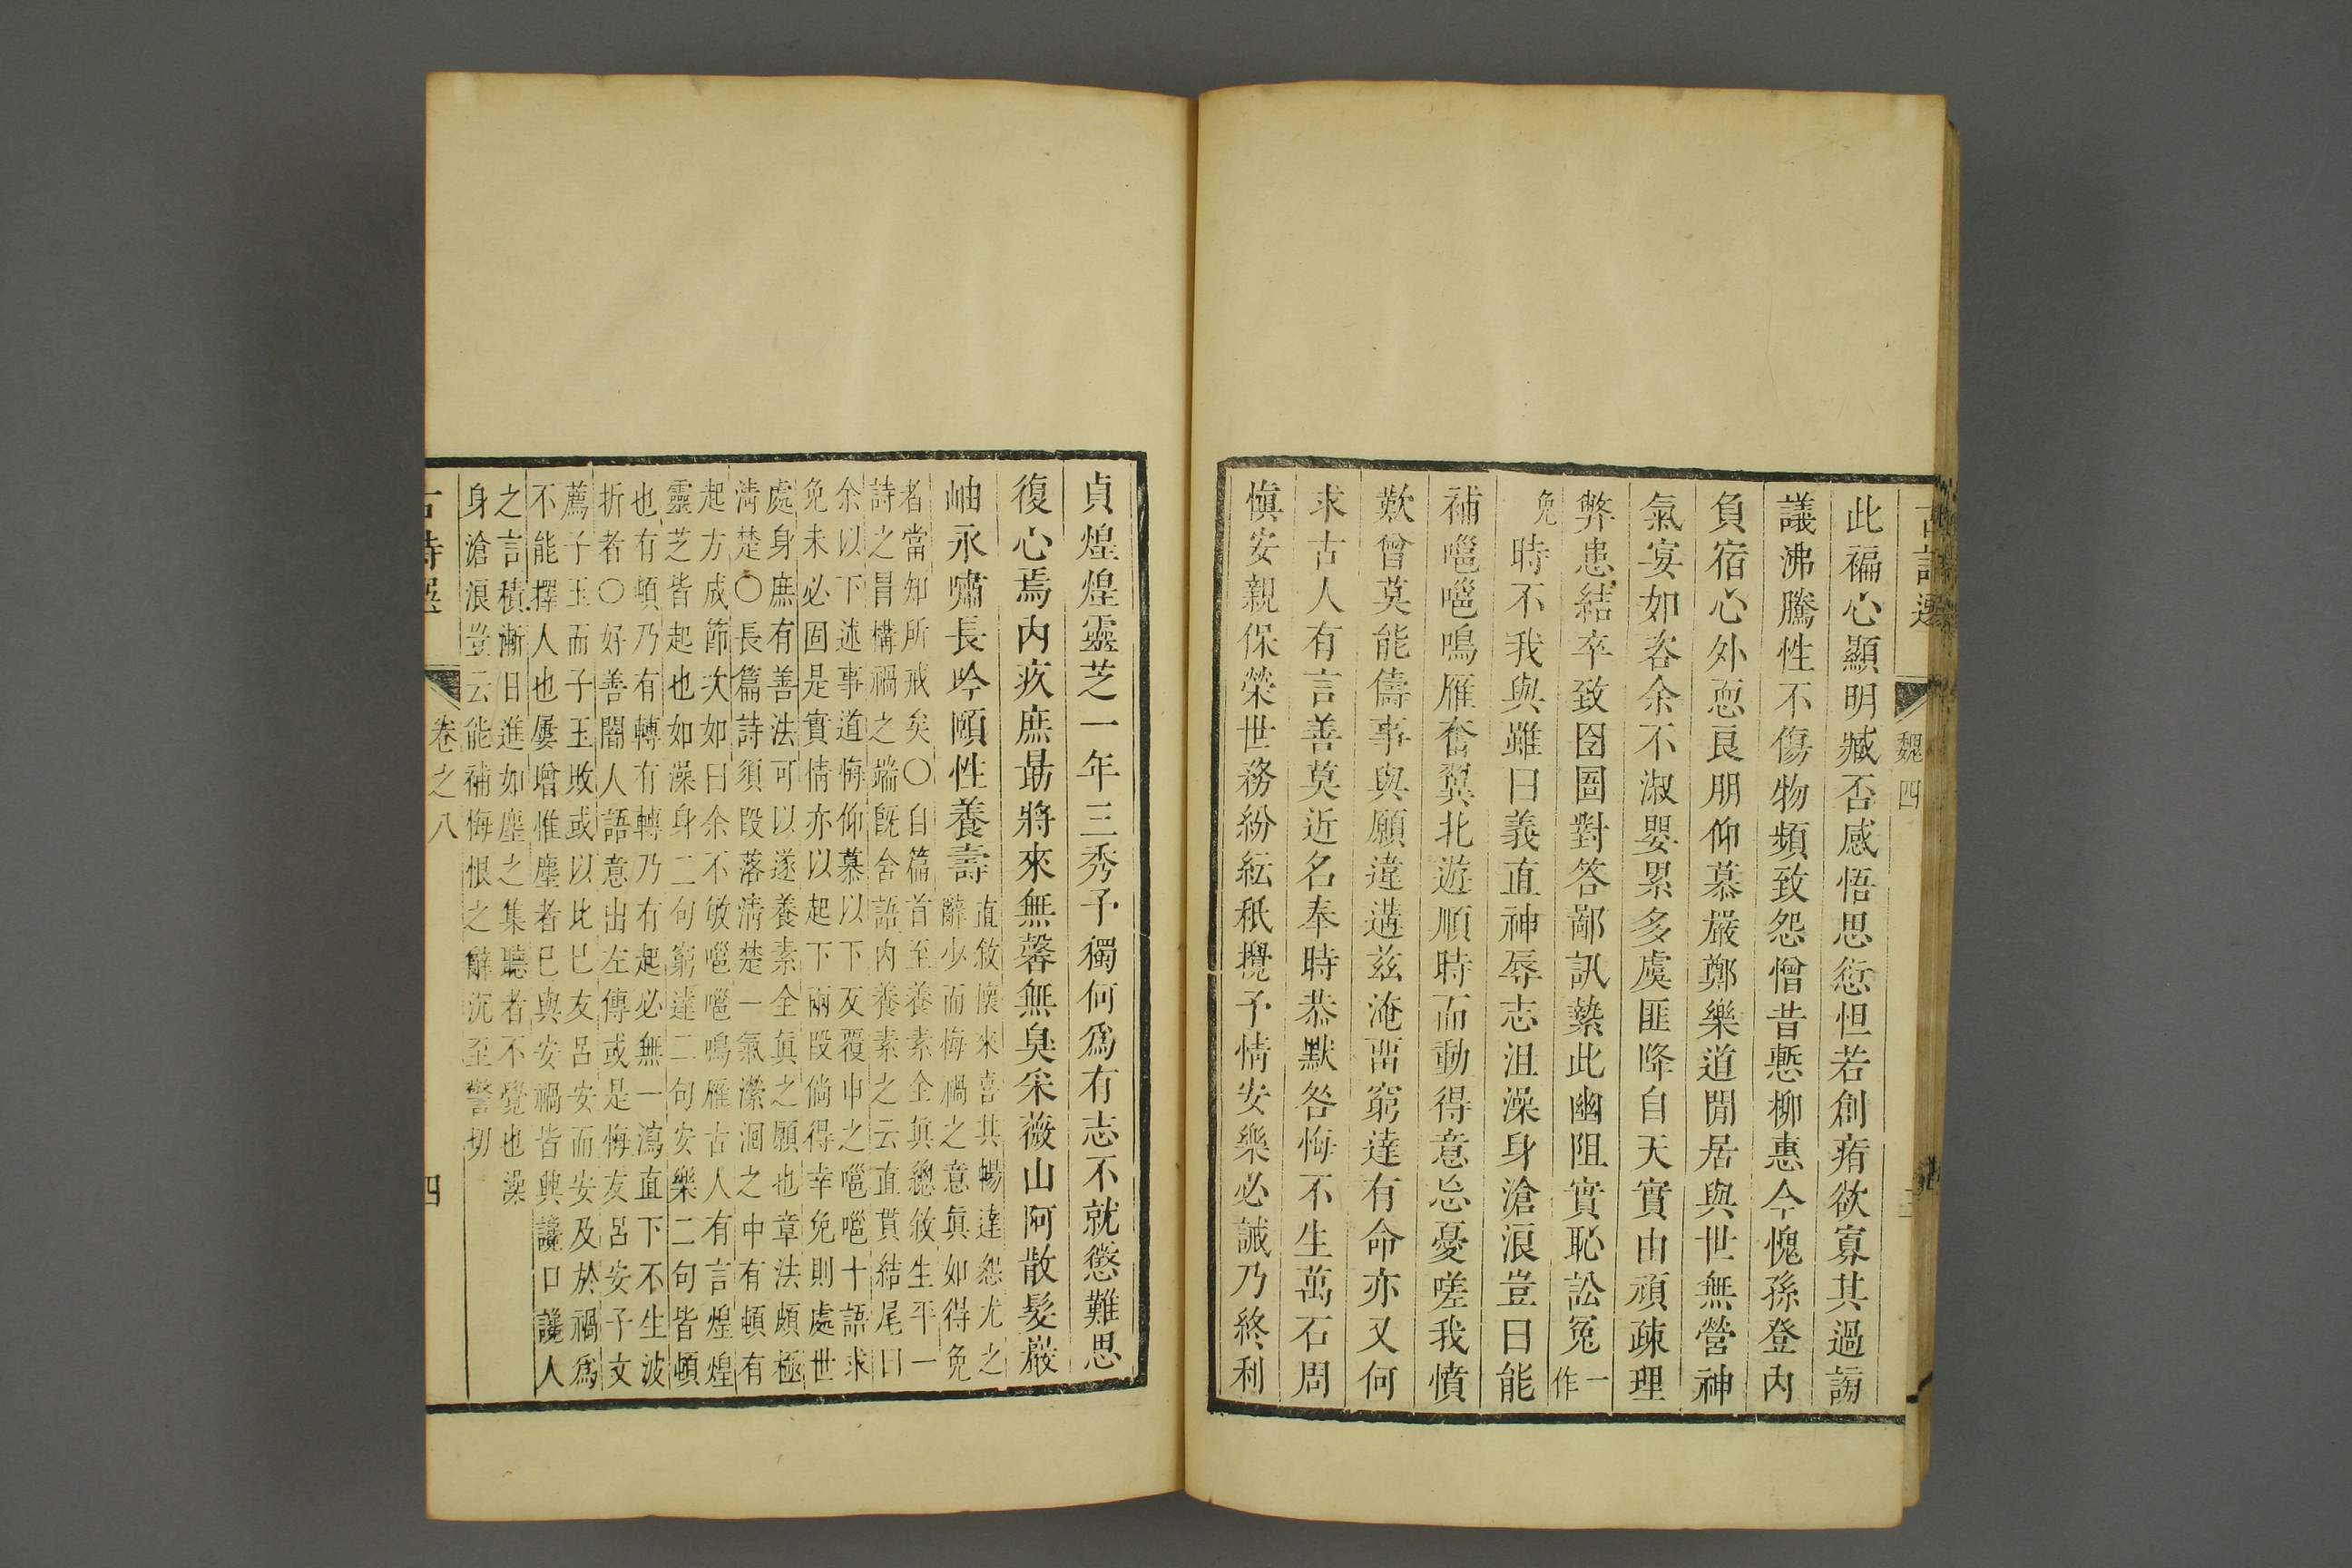 古詩選 魏四
此褊心顯明臧否感悟思愆怛若創痏欲寡其過謗
議沸騰性不傷物頻致怨憎昔慙柳惠今愧孫登內
負宿心外恧良朋仰慕嚴鄭樂道閒居與世無營神
氣宴如咨余不淑嬰累多虞匪降自天實由頑疎理
弊患結卒致囹圄對答鄙訊縶此幽阻實恥訟冤一作
免時不我與雖曰義直神辱志沮澡身滄浪豈曰能
補嗈嗈鳴雁奮翼北遊順時而動得意忘憂嗟我憤
歎曾莫能儔事與願違遘兹淹畱窮達有命亦又何
求古人有言善莫近名奉時恭默咎悔不生萬石周
愼安親保榮世務紛紜秖攪予情安樂必誡乃終利
貞煌煌靈芝一年三秀予獨何爲有志不就懲難思
復心焉內疚庶勗將來無馨無臭采薇山阿散髮巖
岫永嘯長吟頤性養壽
直敘懷來喜其暢達怨尤之
辭少而悔禍之意眞如得免
者當知所戒矣○自篇首至養素全眞總敘生平一
詩之昌構禍之端旣舍語內養素之云直貫結尾曰
余以下述事道悔仰慕以下反覆申之嗈嗈十語求
免未必固是實情亦以起下兩段倘得幸免則處世
處身庶有善法可以遂養素全眞之願也章法頗極
淸楚○長篇詩須段落淸楚一氣瀠洄之中有頓有
起方成節次如曰余不敏嗈嗈鳴雁古人有言煌煌
靈芝皆起也如澡身二句窮達二句安樂二句皆頓
也有頓乃有轉有轉乃有起必無一瀉直下不生波
折者○好善闇人語意出左傳或是悔友呂安子文
薦子玉而子玉敗或以比已友呂安而安及於禍爲
不能擇人也屢增惟塵者已與安禍皆興讒口讒人
之言積漸日進如塵之集聽者不覺也澡
身滄浪豈云能補悔恨之辭沉至警切
古詩選 卷之八 四